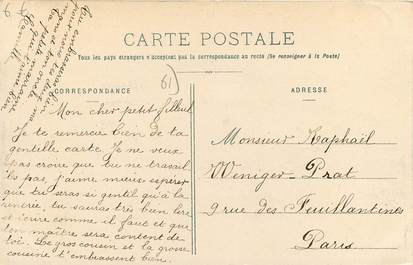 CARTE POSTALE
Tous les pays étrangers n'acceptent pas la correspondance au recto (Se renseigner à la Poste)
CORRESPONDANCE
ADRESSE
61
Mon cher petit filleul
Je te remercie bien de ta
gentille carte. Je ne veux
pas croire que tu ne travail
les pas, j'aime mieux espérer
que tu seras si gentil qu'à la
rentrée, tu sauras très bien lire
et écrire comme il faut et que
ton maître sera content de
toi. Le gros cousin et la grosse
cousine t'embrassent bien.
Monsieur Raphaël
Weniger-Prat
9 rue des Feuillantines
Paris